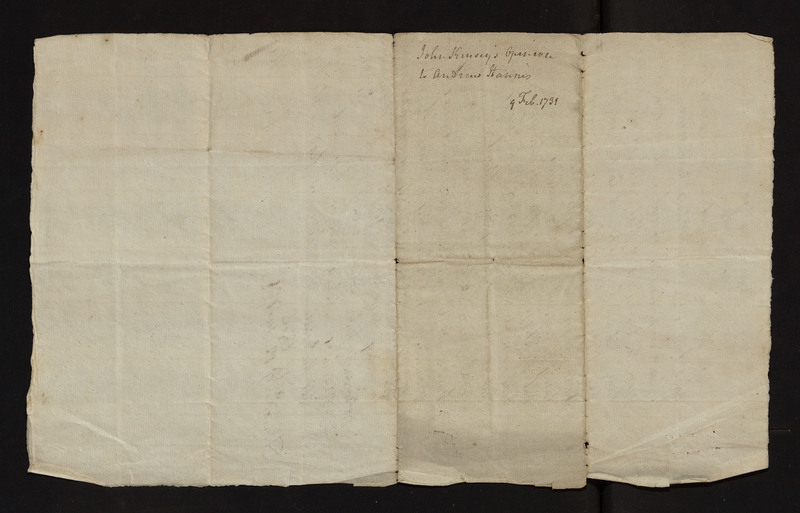 John Kinsey's Opinion
to Andrew Hannis
9 Feb. 1731